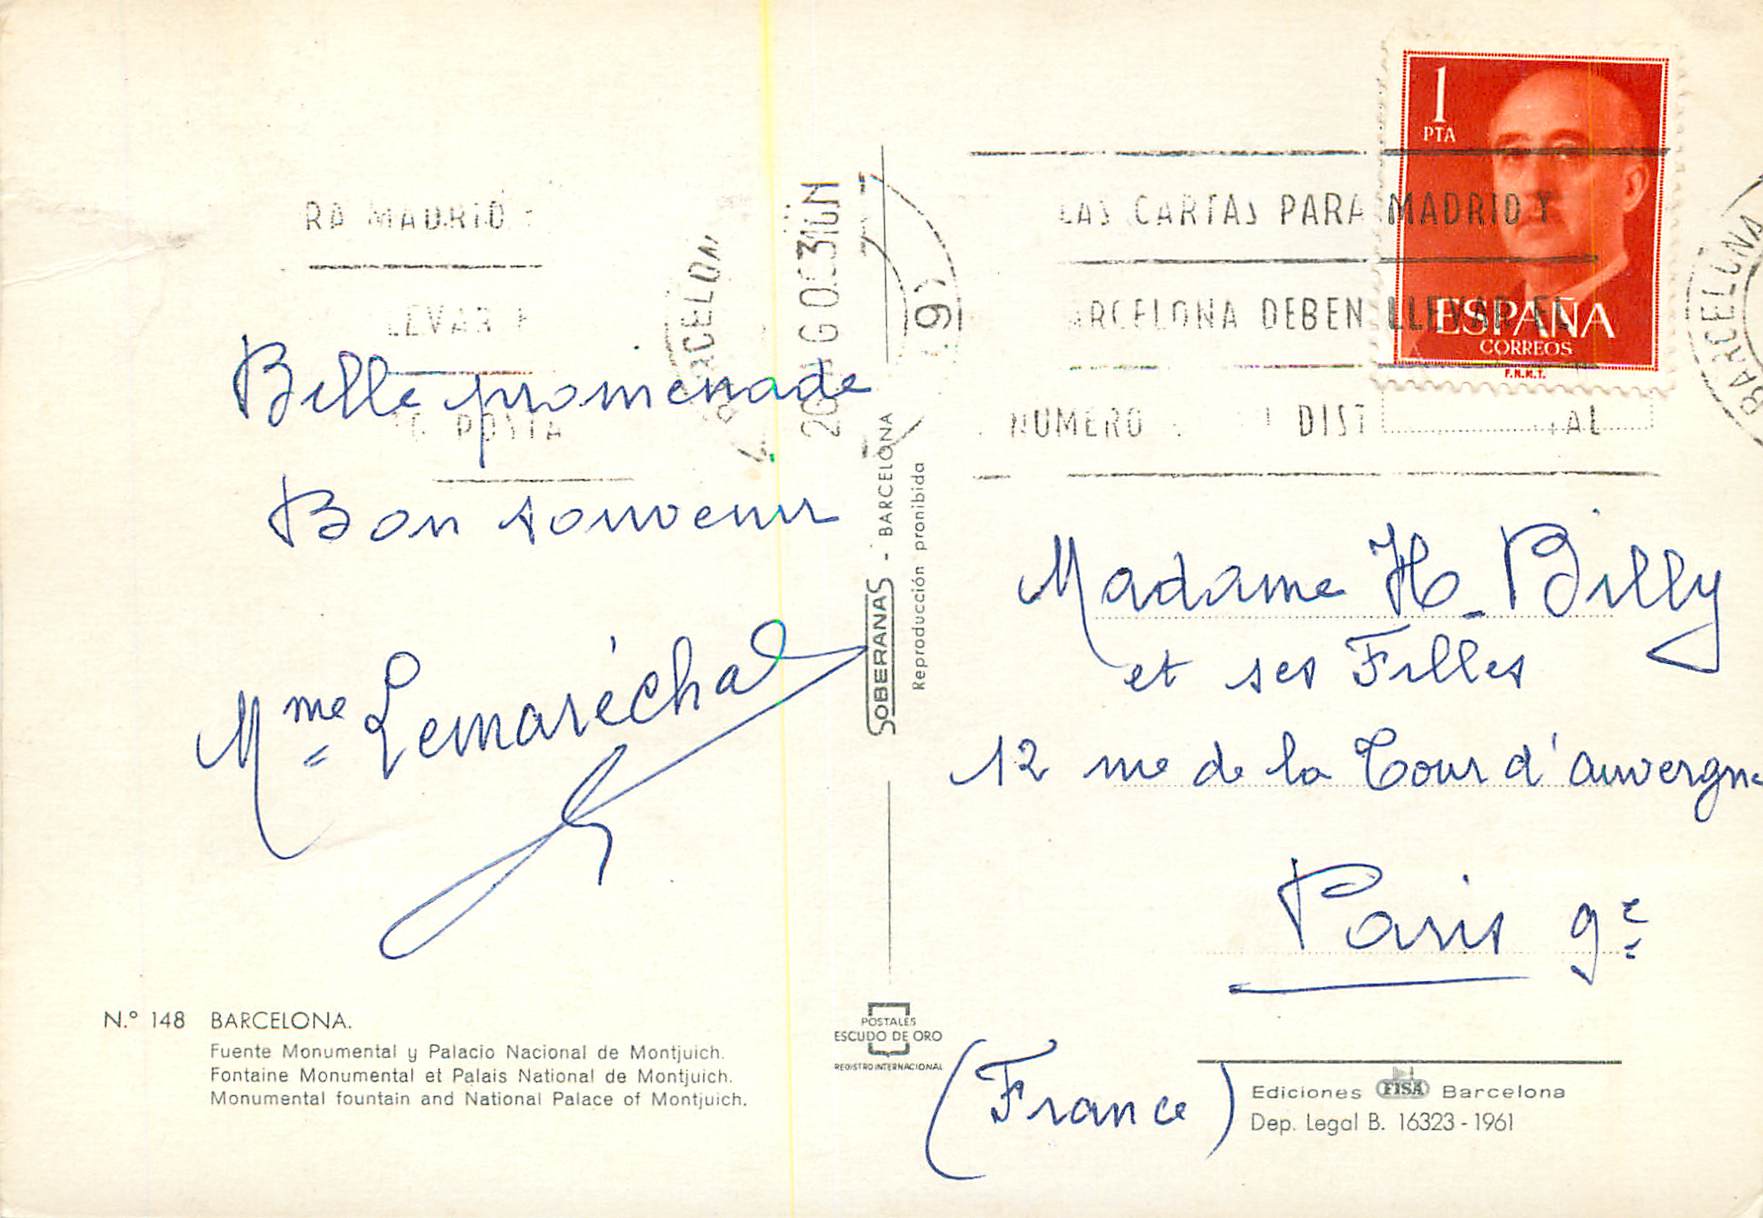 Belle promenade
Bon souvenir
Mme Lemaréchal
N.° 148 BARCELONA.
Fuente Monumental y Palacio Nacional de Montjuich.
Fontaine Monumental et Palais National de Montjuich.
Monumental fountain and National Palace of Montjuich.
RA MADRID
LLEVAR
POSTA
SOBERANAS - BARCELONA
Reproducción prohibida
POSTALES
ESCUDO DE ORO
REGISTRO INTERNACIONAL
1
PTA
ESPAÑA
CORREOS
F.N.M.T.
LAS CARTAS PARA MADRID Y
ARCELONA DEBEN LLEVAR EL
NUMERO DIST AL
BARCELONA
Madame H. Billy
et ses Filles
12 rue de la Tour d'auvergne
Paris 9e
(France)
Ediciones FISA Barcelona
Dep. Legal B. 16323 - 1961